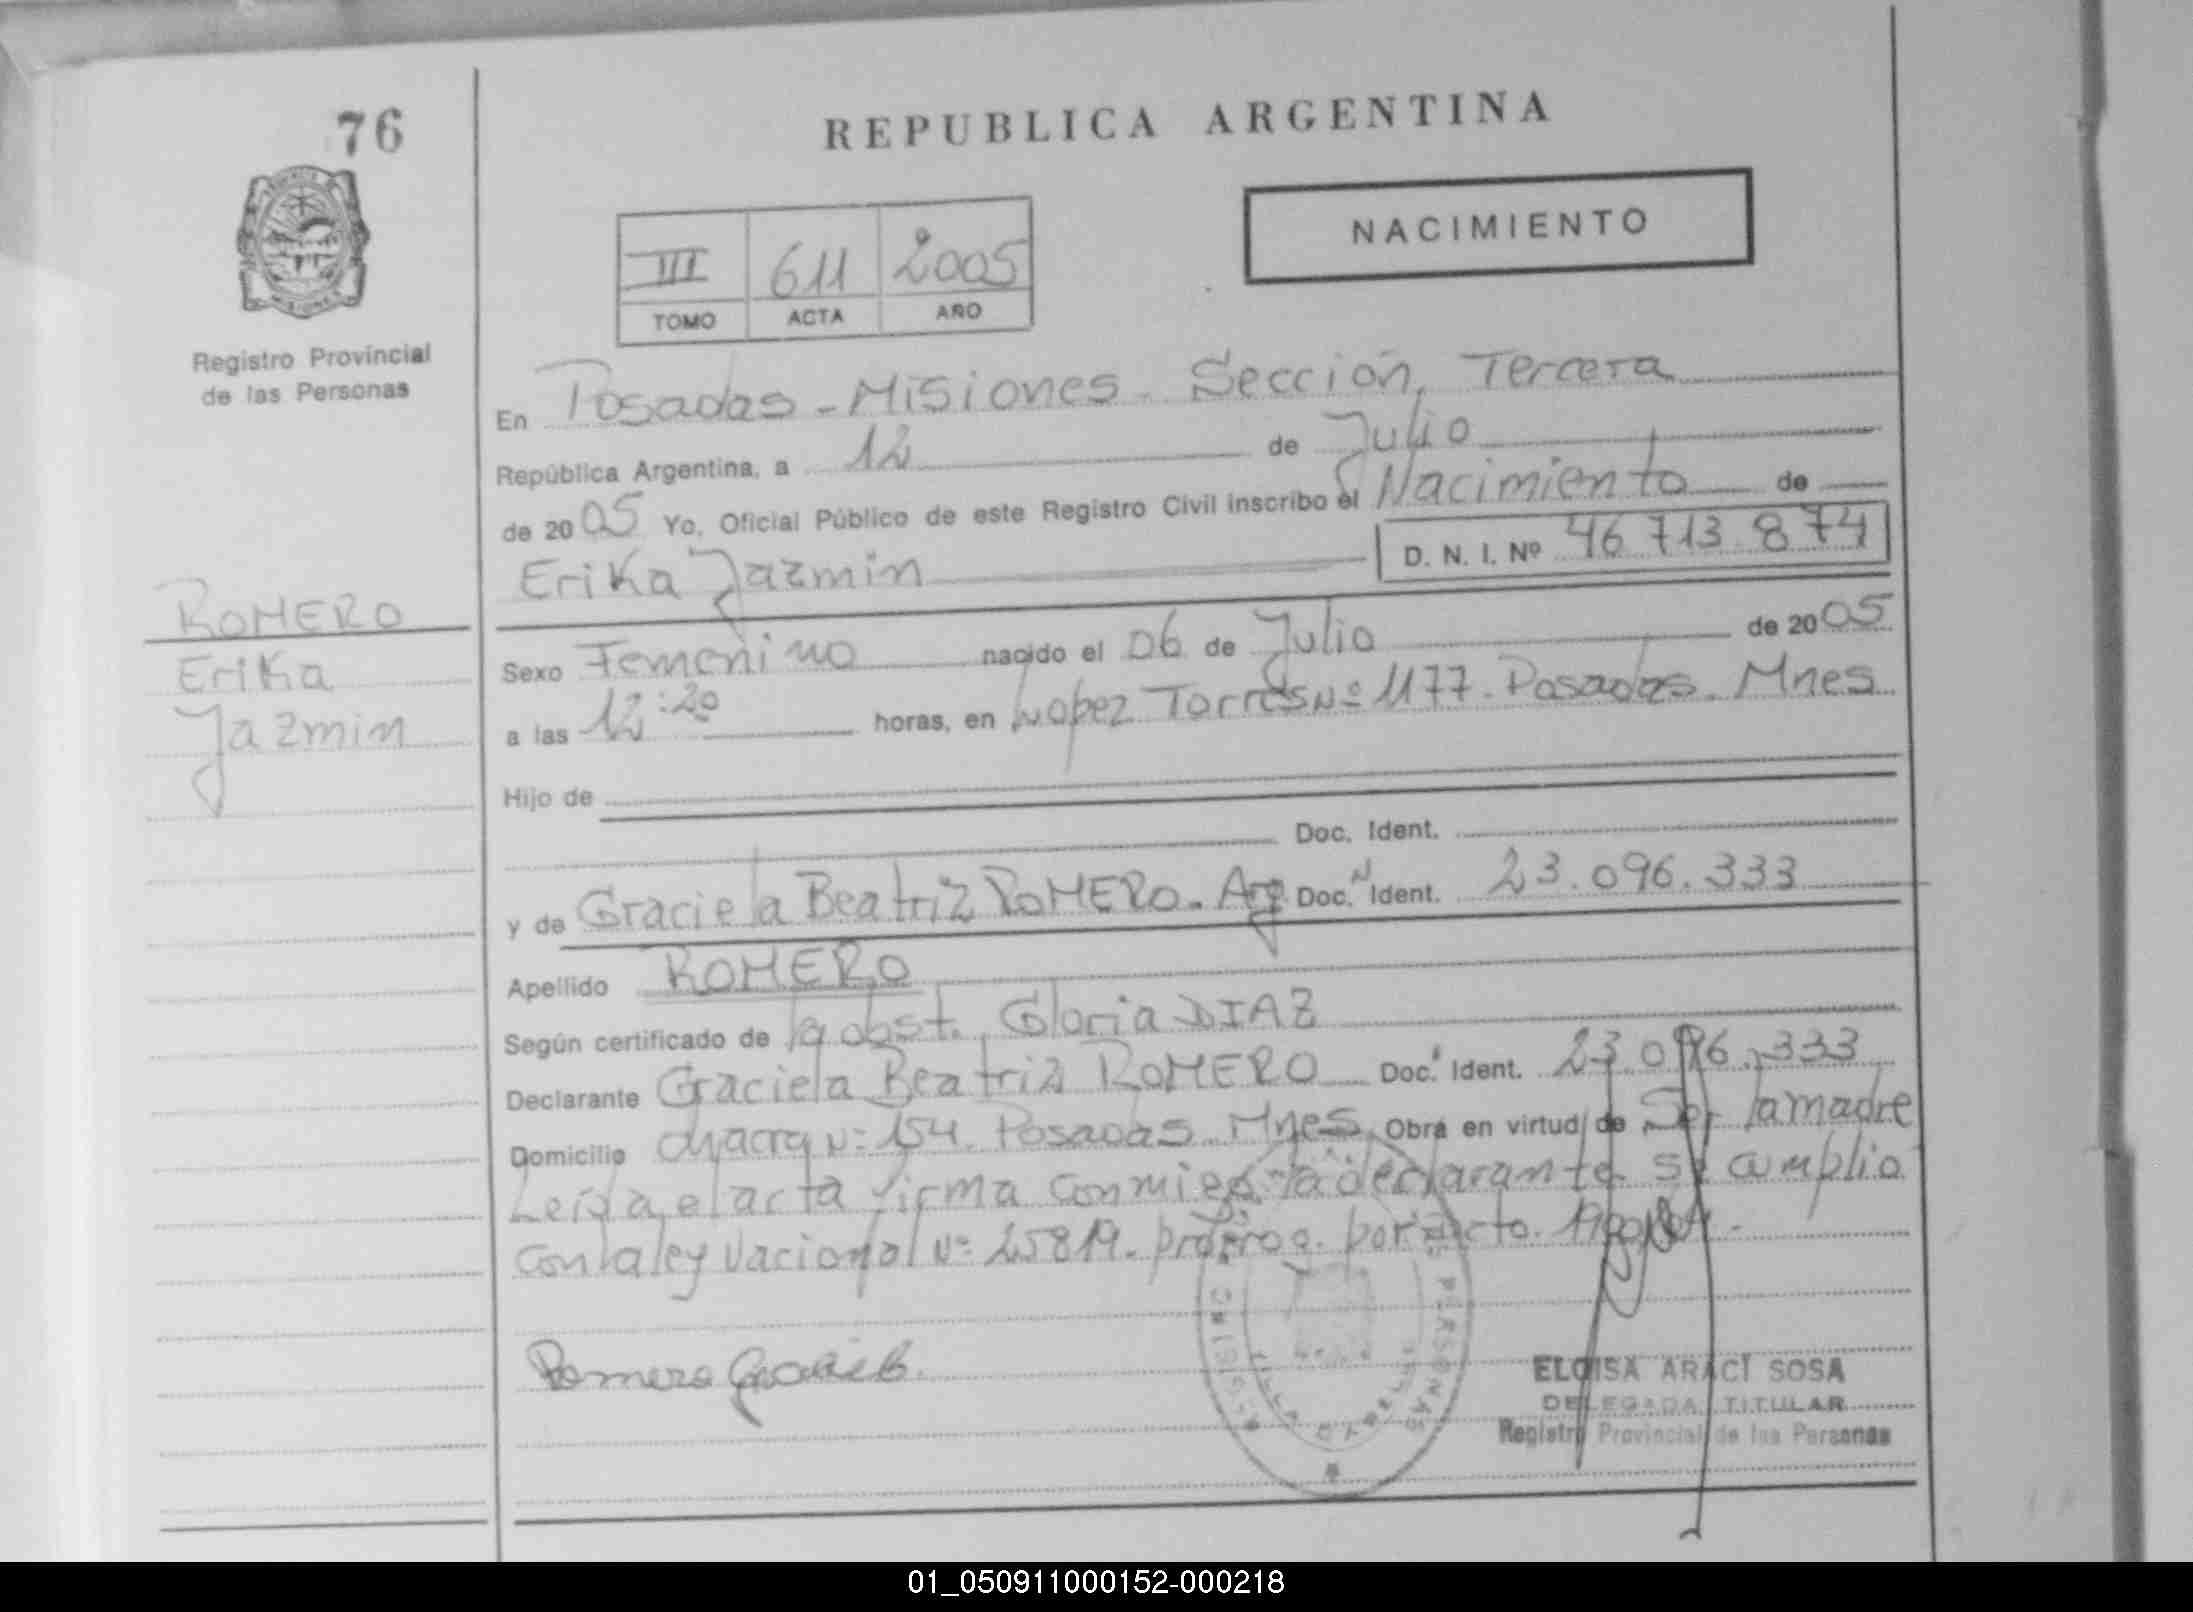 76
REPUBLICA ARGENTINA
NACIMIENTO
III 611 2005
TOMO ACTA AÑO
Registro Provincial
de las Personas
En Posadas - Misiones. Sección, Tercera
República Argentina, a 12 de Julio
de 2005 Yo, Oficial Público de este Registro Civil inscribo el Nacimiento de
Erika Jazmin D. N. I. Nº 46 713.874
ROMERO
Erika
Jazmin
Sexo Femenino nacido el 06 de Julio de 2005
a las 12:20 horas, en Lopez Torres Nº 1177. Posadas. Mnes
Hijo de
Doc. Ident.
y de Graciela Beatriz ROMERO. Arg Doc. N Ident. 23.096.333
Apellido ROMERO
Según certificado de la obst. Gloria DIAZ
Declarante Graciela Beatriz ROMERO Doc. Ident. 23.096.333
Domicilio chacra Nº 154. Posadas. Mnes. Obra en virtud de Ser la madre
Leída el acta firma conmigo la declarante se cumplio
con la ley Nacional Nº 25819. prorrog. por dcto.
Romero Graciela B.
PERSONAS
MISIONES
ELOISA ARACI SOSA
DELEGADA TITULAR
Registro Provincial de las Personas
01_050911000152-000218